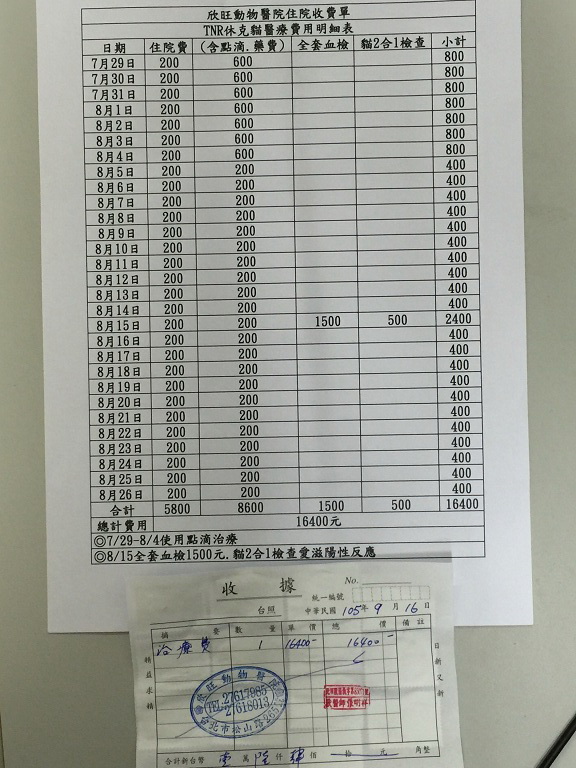 欣旺動物醫院住院收費單
TNR休克貓醫療費用明細表
日期 住院費 (含點滴.藥費) 全套血檢 貓2合1檢查 小計
7月29日 200 600 800
7月30日 200 600 800
7月31日 200 600 800
8月1日 200 600 800
8月2日 200 600 800
8月3日 200 600 800
8月4日 200 600 800
8月5日 200 200 400
8月6日 200 200 400
8月7日 200 200 400
8月8日 200 200 400
8月9日 200 200 400
8月10日 200 200 400
8月11日 200 200 400
8月12日 200 200 400
8月13日 200 200 400
8月14日 200 200 400
8月15日 200 200 1500 500 2400
8月16日 200 200 400
8月17日 200 200 400
8月18日 200 200 400
8月19日 200 200 400
8月20日 200 200 400
8月21日 200 200 400
8月22日 200 200 400
8月23日 200 200 400
8月24日 200 200 400
8月25日 200 200 400
8月26日 200 200 400
合計 5800 8600 1500 500 16400
總計費用 16400元
◎7/29-8/4使用點滴治療
◎8/15全套血檢1500元.貓2合1檢查愛滋陽性反應
收據 No.
統一編號
台照 中華民國 105年 9月 16日
摘要 數量 單價 總價 備註
治療費 1 16400- 16400-
精益求精
日新又新
欣旺動物醫院
TEL:27617985
27618013
台北市松山路265
獸醫師張明祥
合計新台幣 壹萬陸仟肆佰 拾 元 角整